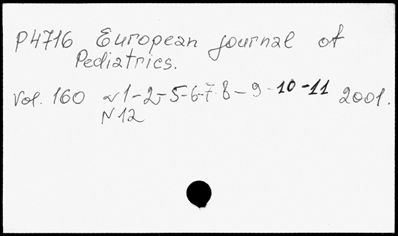 P4716 European journal of
Pediatrics.
Vol. 160 N1-2-5-6-7-8-9-10-11 2001.
N12